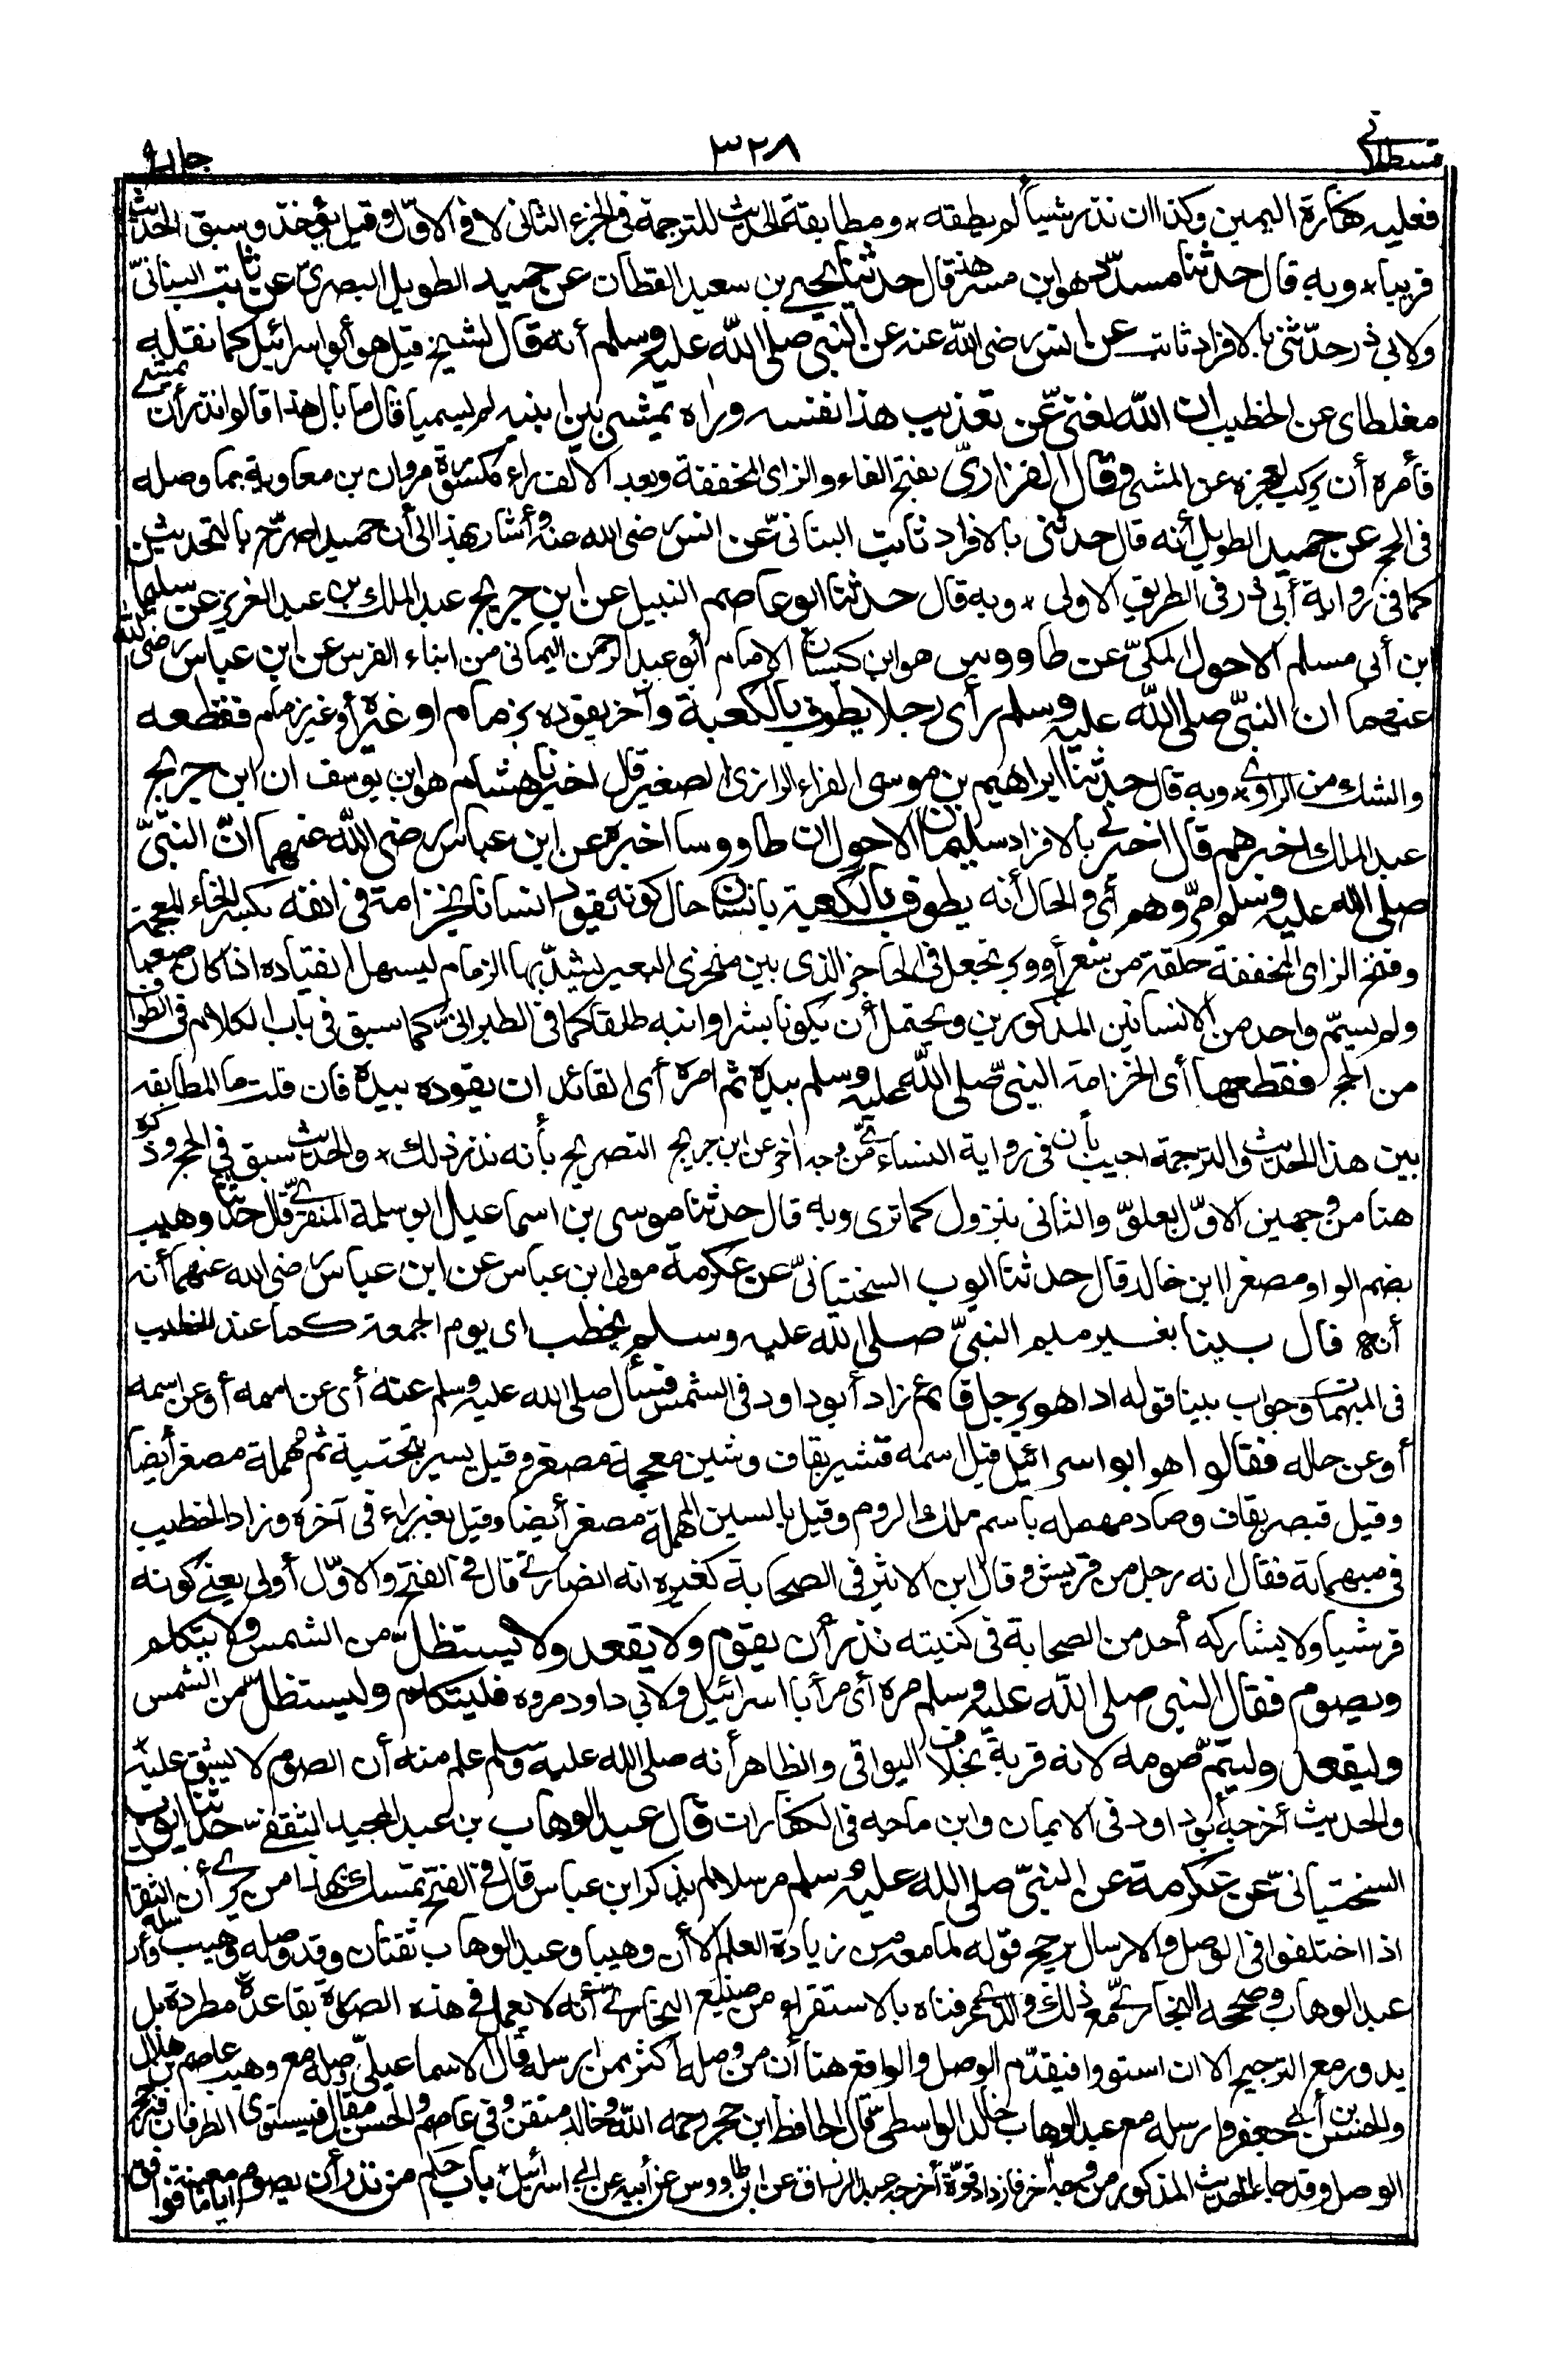 قسطلانی ٣٢٨ جلد ٩
فعليه كفارة اليمين وكذا ان نذر شيأ لم يطقه * ومطابقة الحديث للترجمة فى الجزء الثانى لا فى الاول وقيل يؤخذ وسبق الحديث
قريبا * وبه قال حدثنا مسدّد هو ابن مسرهد قال حدثنا يحيى بن سعيد القطان عن حميد الطويل البصرىّ عن ثابت البنانىّ
ولابى ذر حدّثنى بالافراد ثابت عن انس رضى الله عنه عن النبى صلى الله عليه وسلم أنه قال لشيخ قيل هو أبو اسرائيل كما نقله
مغلطاى عن الخطيب ان الله لغنىّ عن تعذيب هذا نفسه وراه يمشى بين ابنيه لم يسميا قال ما بال هذا قالوا نذر أن يمشى
فأمره أن يركب لعجزه عن المشى وقال الفزارىّ بفتح الفاء والزاى المخففة وبعد الالف راء مكسورة مروان بن معاوية بما وصله
فى الحج عن حميد الطويل أنه قال حدثنى بالافراد ثابت البنانىّ عن انس رضى الله عنه وأشار بهذا الى أن حميدا صرّح بالتحديث
كما فى رواية أبى ذر فى الطريق الاولى * وبه قال حدثنا ابو عاصم النبيل عن ابن جريج عبد الملك بن عبد العزيز عن سليمان
ابن أبى مسلم الاحول المكىّ عن طاووس هو ابن كيسان الامام أبو عبد الرحمن اليمانى من ابناء الفرس عن ابن عباس رضى الله
عنهما ان النبىّ صلى الله عليه وسلم رأى رجلا يطوف بالكعبة وآخر يقوده بزمام او غيره أو غير زمام فقطعه
والشك من الراوى * وبه قال حدثنا ابراهيم بن موسى الفراء الرازى الصغير قال اخبرنا هشام هو ابن يوسف ان ابن جريج
عبد الملك اخبرهم قال اخبرنى بالافراد سليمان الاحول ان طاووسا اخبره عن ابن عباس رضى الله عنهما انّ النبىّ
صلى الله عليه وسلم مرّ وهو أى والحال أنه يطوف بالكعبة بانسان حال كونه يقود انسانا بخزامة فى انفه بكسر الخاء المعجمة
وفتح الزاى المخففة حلقة من شعر أو وبر تجعل فى الحاجز الذى بين منخرى البعير يشدّ بها الزمام ليسهل انقياده اذا كان صعبا
ولم يسمّ واحد من الانسانين المذكورين ويحتمل أن يكونا بشرا وابنه طلقا كما فى الطبرانىّ كما سبق فى باب الكلام فى الطواف
من الحج فقطعها أى الخزامة النبىّ صلى الله عليه وسلم بيده ثم امره أى القائد ان يقوده بيده فان قلت ما المطابقه
بين هذا الحديث والترجمة اجيب بأن فى رواية النساءى من وجه اخر عن ابن جريج التصريح بأنه نذر ذلك * والحديث سبق فى الحج وذكره
هنا من وجهين الاوّل بعلوّ والثانى بنزول كما ترى وبه قال حدثنا موسى بن اسماعيل ابو سلمة المنقرىّ قال حدثنا وهيب
بضم الواو مصغرا ابن خالد قال حدثنا ايوب السختيانىّ عن عكرمة مولى ابن عباس عن ابن عباس رضى الله عنهما أنه
أنه قال بينا بغير ميم النبىّ صلى الله عليه وسلم يخطب اى يوم الجمعة كما عند الخطيب
فى المبهمات وجواب بينا قوله اذا هو برجل قائم زاد أبو داود فى الشمس فسأل صلى الله عليه وسلم عنه أى عن اسمه أو عن اسمه
أو عن حاله فقالوا هو ابو اسرائيل قيل اسمه قشير بقاف وشين معجمة مصغر وقيل يسير بتحتية ثم مهملة مصغر أيضا
وقيل قيصر بقاف وصاد مهمله باسم ملك الروم وقيل بالسين المهملة مصغر أيضا وقيل بغير راء فى آخره وزاد الخطيب
فى مبهماته فقال انه رجل من قريش وقال ابن الاثير فى الصحابة كغيره انه انصارى قال فى الفتح والاوّل أولى يعنى كونه
قرشيا ولا يشاركه أحد من الصحابة فى كنيته نذر أن يقوم ولا يقعد ولا يستظلّ من الشمس ولا يتكلم
ويصوم فقال النبى صلى الله عليه وسلم مره أى مر أبا اسرائيل ولابى داود مروه فليتكلم وليستظلّ من الشمس
وليقعد وليتمّ صومه لانه قربة بخلاف البواقى والظاهر أنه صلى الله عليه وسلم علم منه أن الصوم لا يشق عليه
والحديث أخرجه أبو داود فى الايمان وابن ماجه فى الكفارات قال عبد الوهاب بن عبد المجيد الثقفى حدثنا ايوب
السختيانىّ عن عكرمة عن النبىّ صلى الله عليه وسلم مرسلا لم يذكر ابن عباس قال فى الفتح تمسك بهذا من يرى أن الثقات
اذا اختلفوا فى الوصل والارسال يرجح قوله لما معه من زيادة العلم لأن وهيبا وعبد الوهاب ثقتان وقد وصله وهيب وأرسله
عبد الوهاب وصححه البخارىّ مع ذلك والذى عرفناه بالاستقراء من صنيع البخارى أنه لا يعمل فى هذه الصورة بقاعدة مطردة بل
يدور مع الترجيح الا ان استووا فيقدّم الوصل والواقع هنا أن من وصله أكثر ممن ارسله قال الاسماعيلىّ وصله مع وهيب عاصم بن هلال
والحسن بن أبى جعفر وارسله مع عبد الوهاب خالد الواسطىّ قال الحافظ ابن حجر رحمه الله وخالد متقن وفى عاصم والحسن مقال فيستوى الطرفان فيترجح
الوصل وقد جاء الحديث المذكور من وجه آخر فازداد قوّة أخرجه عبد الرزاق عن ابن طاووس عن أبيه عن ابى اسرائيل * باب حكم من نذر أن يصوم أياما معينة فوافق